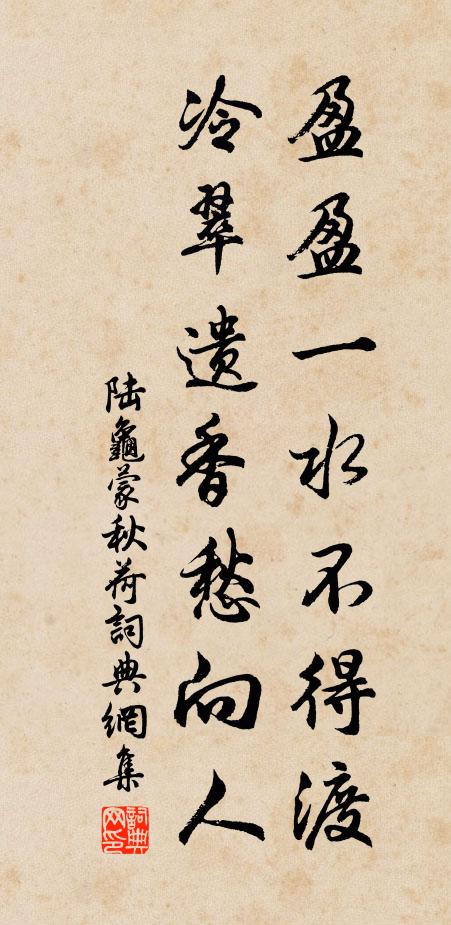 盈盈一水不得渡
冷翠遗香愁向人
陆龜蒙秋荷詞典網集
詞典
网印